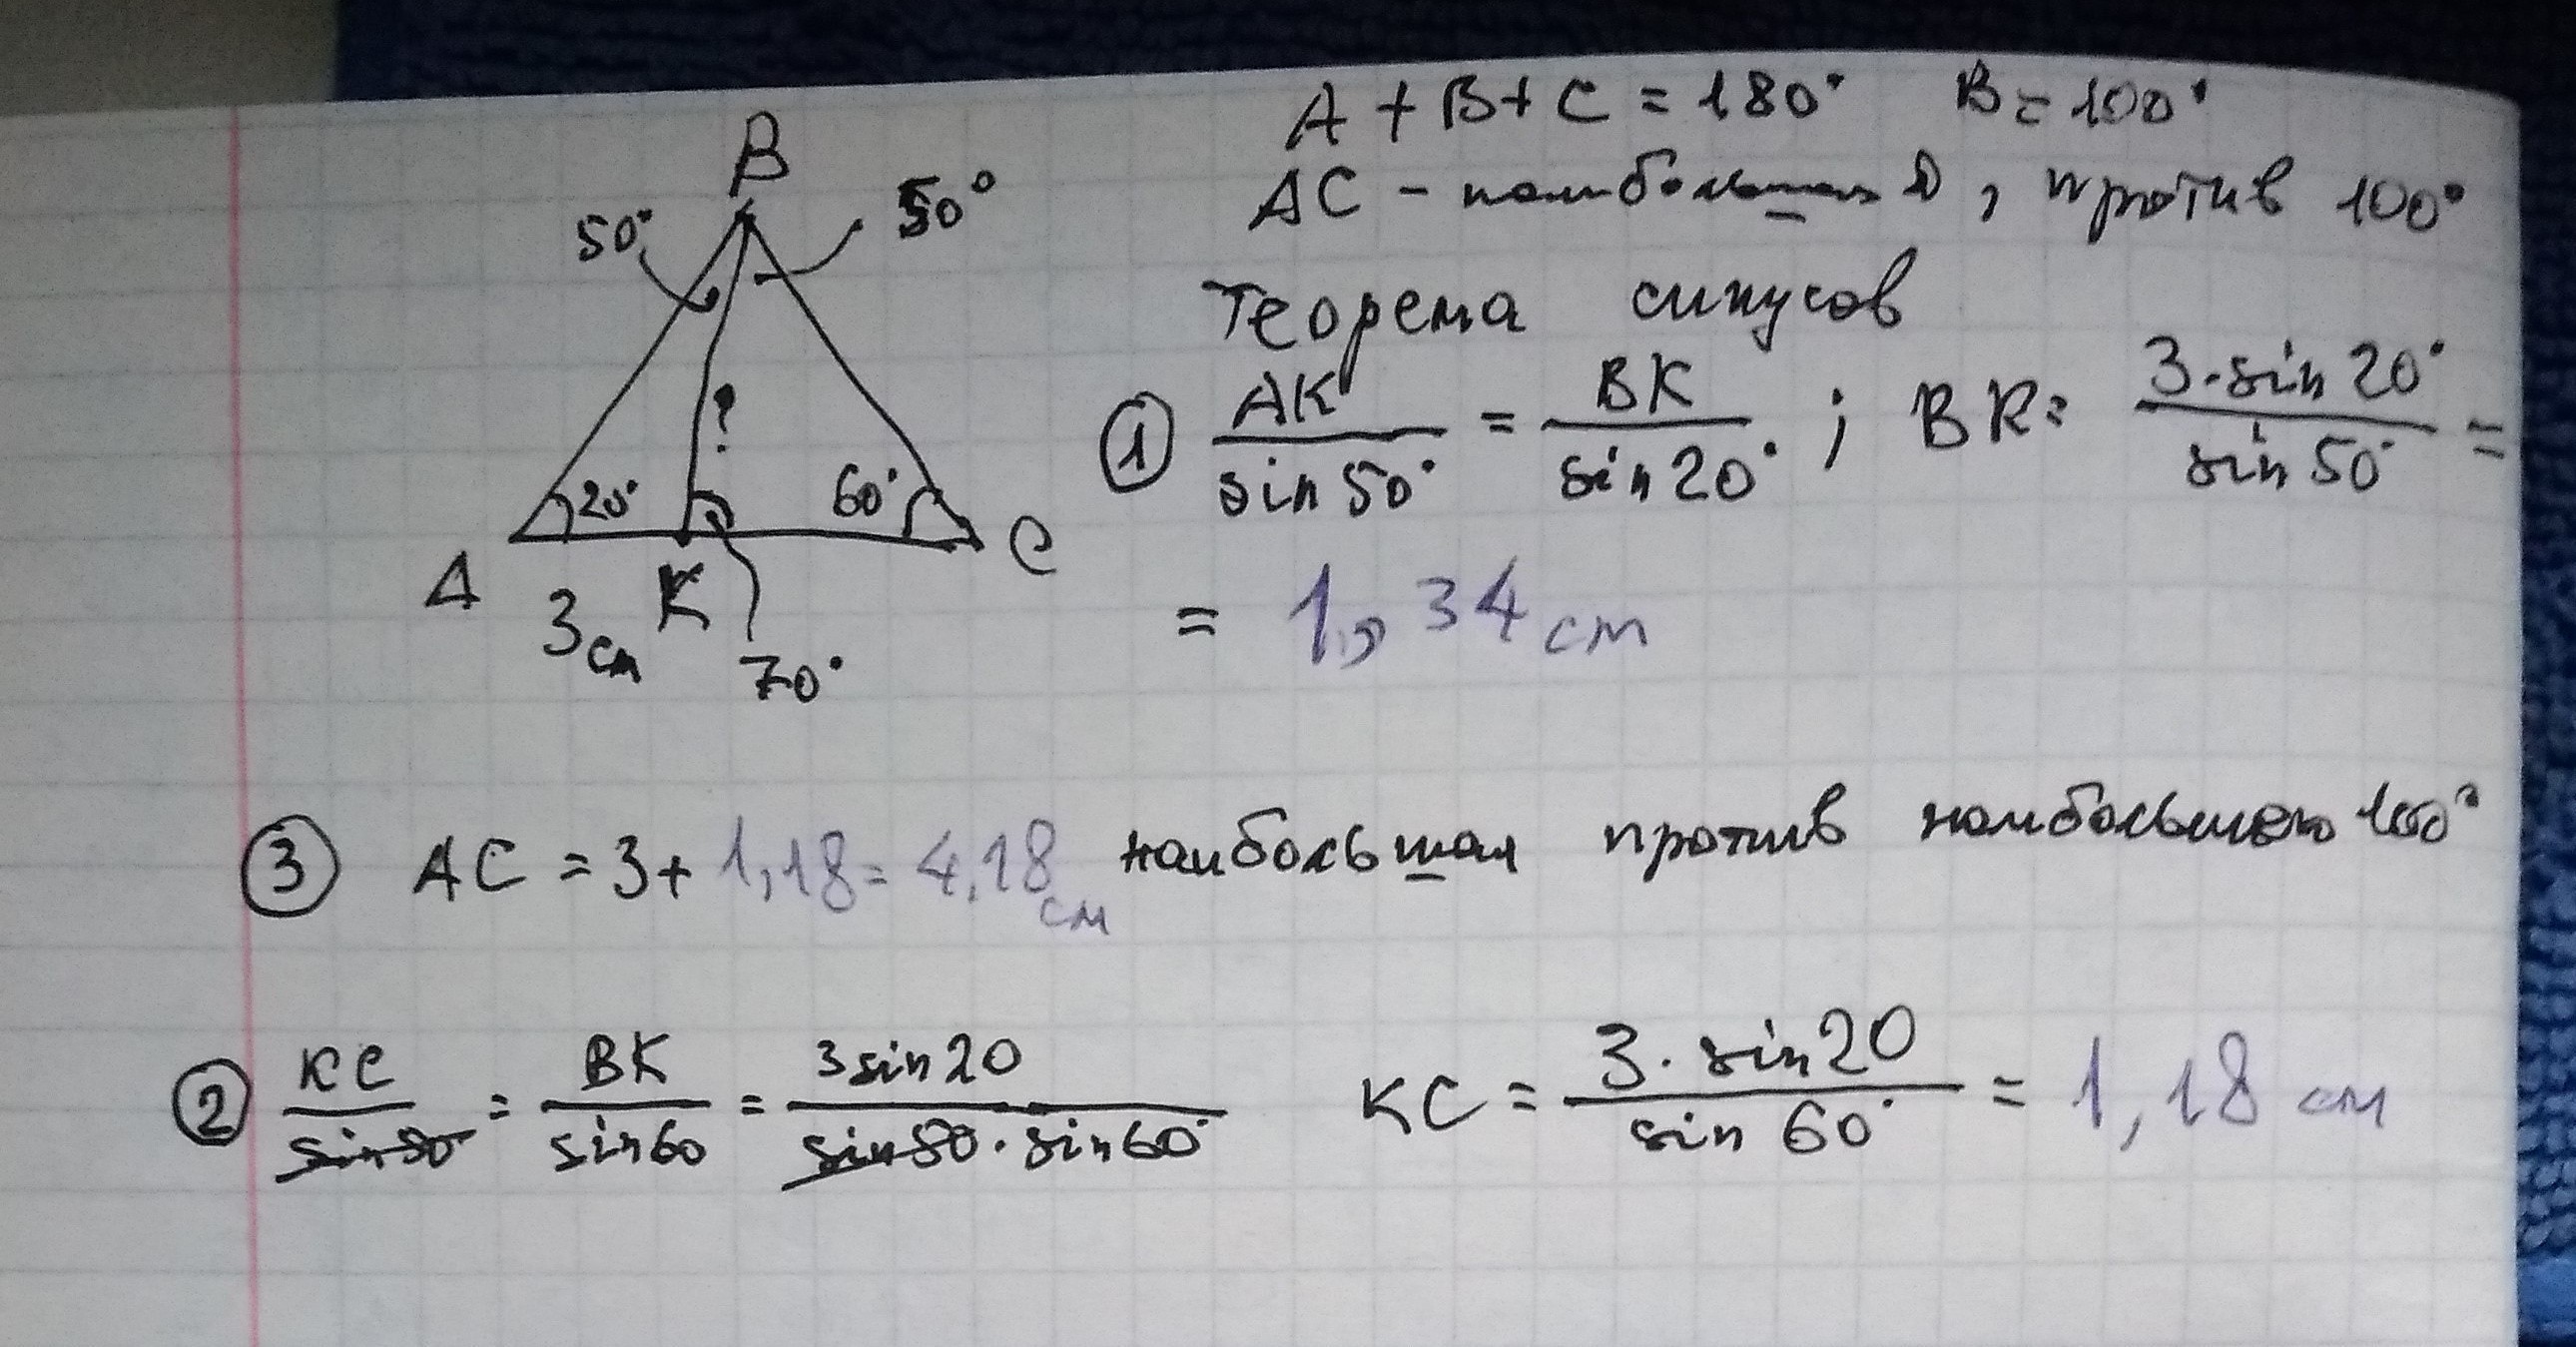 A + B + C = 180° B = 100°
AC - наибольшая, против 100°
B
50° 50°
?
20° 60°
A K C
3 см
70°
Теорема синусов
① AK/sin 50° = BK/sin 20° ; BK = 3·sin 20°/sin 50° =
= 1,34 см
③ AC = 3 + 1,18 = 4,18 см наибольшая против наибольшего 100°
② KC/sin 50 = BK/sin 60 = 3 sin 20/sin 50 · sin 60° KC = 3 · sin 20/sin 60° = 1,18 см